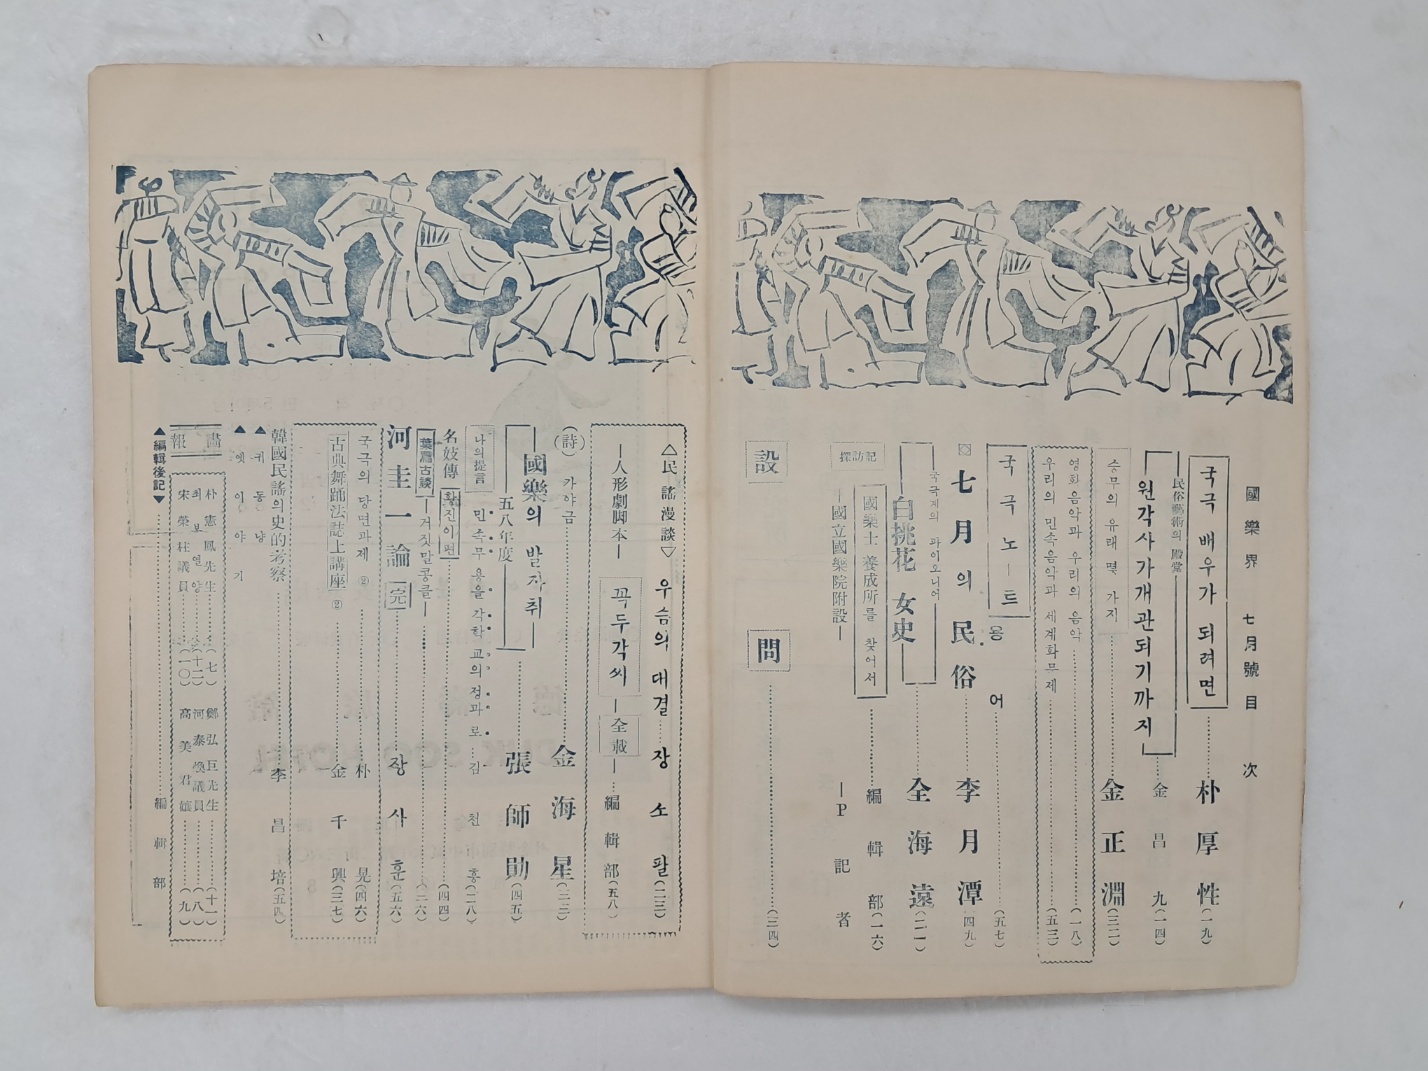 國樂界 七月號目次
국극 배우가 되려면 朴厚性 (一九)
民俗藝術의 殿堂
원각사가개관되기까지 金昌九 (一四)
승무의 유래 몇 가지 金正淵 (三二)
영화음악과 우리의 음악 (一八)
우리의 민속음악과 세계화무제 (五三)
국극노ー트 용어 (五七)
七月의 民俗 李月潭 (四九)
국극계의 파이오니어
白桃花 女史 全海遠 (二一)
探訪記
國樂士 養成所를 찾어서 編輯部 (一六)
國立國樂院附設 ―P記者
設問 (三四)
△民謠漫談▽ 우슴의 대결 장소팔 (二三)
―人形劇脚本― 꼭두각씨 ―全載― 編輯部 (五八)
(詩) 카야금 金海星 (三三)
國樂의 발자취
五八年度 張師勛 (四五)
나의提言 민속무용을 각학교의정과로 김천흥 (二八)
名妓傳 황진이편 (四四)
葉篇古談 ―거짓말콩클― (二六)
河圭一論 完 장사훈 (五六)
국극의 당면과제 ② 朴晃 (四六)
古典舞踊法誌上講座 ② 金千興 (三七)
韓國民謠의 史的考察 李昌培 (五四)
▲귀동냥
▲옛이야기
畵報
朴憲鳳先生 (七) 鄭弘巨先生 (十一)
최봉열양 (十二) 河泰煥議員 (八)
宋榮柱議員 (一〇) 高美君孃 (九)
▲編輯後記▼ 編輯部